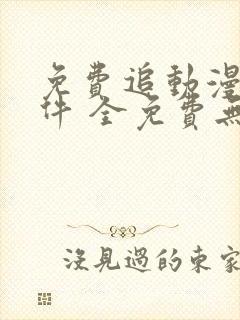 免費追動漫
件 全免費無
沒見過的東家